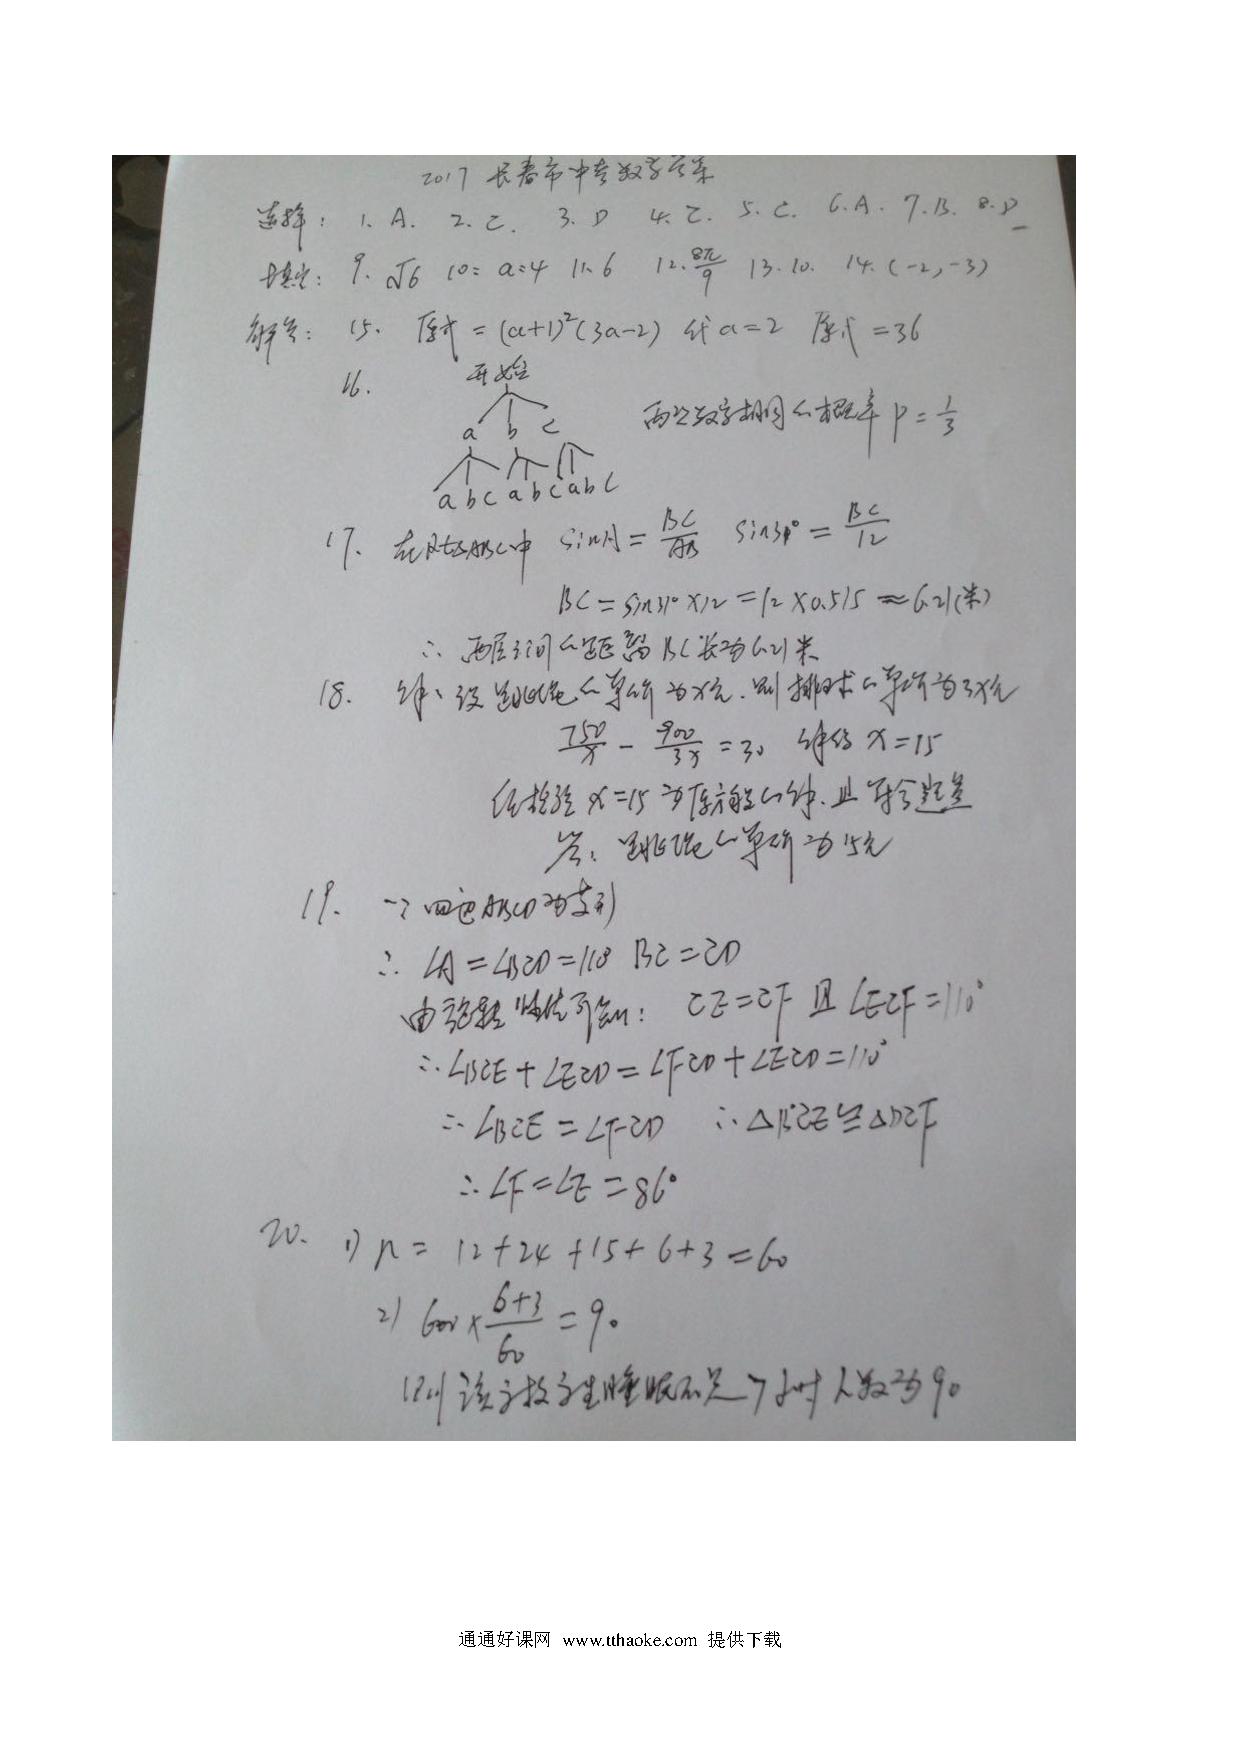 2017 长春市中考数学答案
选择: 1. A. 2. C. 3. D 4. C. 5. C. 6. A. 7. B. 8. D
填空: 9. √6 10: a=4 11. 6 12. 8π/9 13. 10. 14. (-2,-3)
解答: 15. 原式 = (a+1)²(3a-2) 代 a=2 原式 = 36
16. 开始
a b c
a b c a b c a b c
两次数字相同的概率 P = 1/3
17. 在Rt△ABC中 sinA = BC/AB sin31° = BC/12
BC = sin31°×12 = 12×0.515 ≈ 6.21(米)
∴ 两层之间的距离BC长为6.21米
18. 解: 设跳绳的单价为x元. 则排球的单价为3x元
750/x - 900/3x = 30 解得 x = 15
经检验 x=15 为原方程的解. 且符合题意
答: 跳绳的单价为15元
19. ∵ 四边ABCD为菱形
∴ ∠A = ∠BCD = 110° BC = CD
由旋转性质可知: CE = CF 且 ∠ECF = 110°
∴ ∠BCE + ∠ECD = ∠FCD + ∠ECD = 110°
∴ ∠BCE = ∠FCD ∴ △BCE ≌ △DCF
∴ ∠F = ∠E = 86°
20. 1) n = 12+24+15+6+3 = 60
2) 600 × (6+3)/60 = 90
该学校学生睡眠不足7小时人数为90
通通好课网 www.tthaoke.com 提供下载